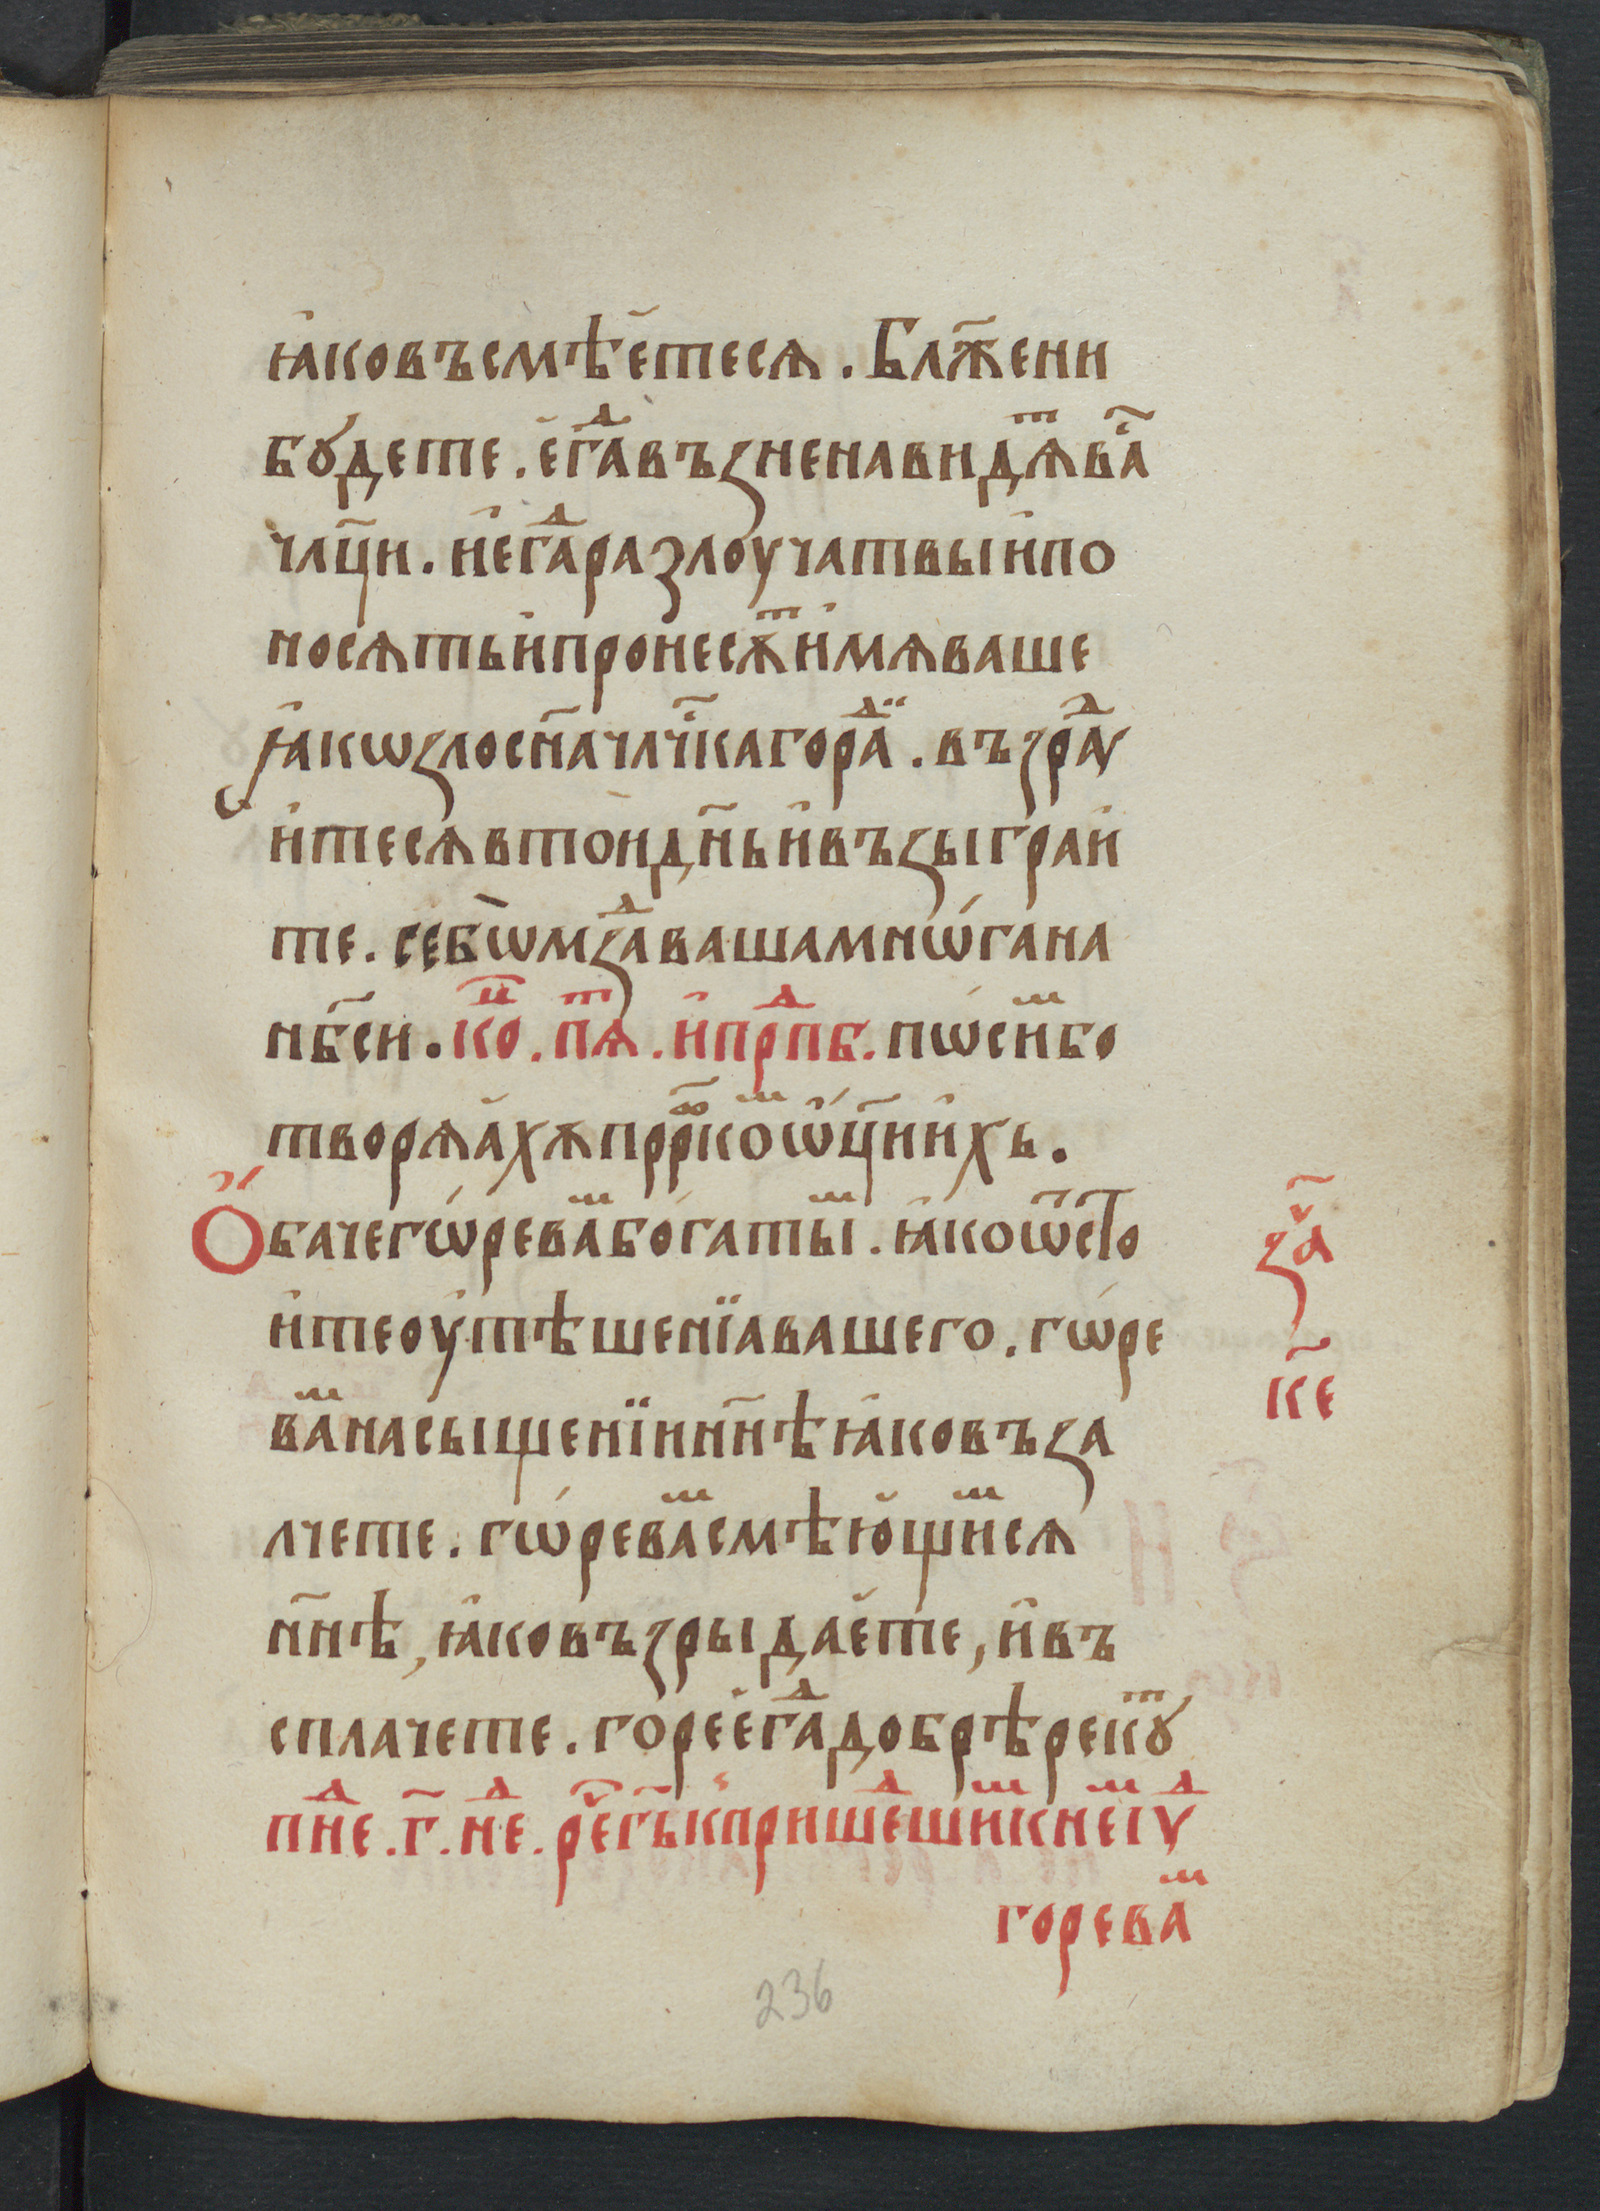 ꙗ҆ковъсмѣе҆тесѧ. Блж҃ени
бꙋдете. е҆гдⷣавъꙁненавидѧⷮвы҃
чл҃ци. и҆егдⷣаразлоучатвыи҆по
носѧтьи҆пронесѧⷮи҆мѧваше
ꙗ҆кѡꙁлосн҃ачл҃чкагорадⷣи. въꙁрадⷣу
и҆тесѧвтоидн҃ьи҆въꙁыграи
те. себѡмꙁдⷣавашамнѡ́гана
нб҃си. коⷰ. пѧⷮ. и҆прпⷣб. пѡсиⷨбо
творѧа҆хѫпрⷪ҇ркоⷨѿц҃ии҆хь.
Ѻбачегѡ́ревⷨабо́гатыⷨ. ꙗ҆коѿсто
и҆теоутѣшенїавашего. гѡ́ре
ваⷨнасыщенїинн҃ѣꙗ҆ковъꙁа
лчете. гѡ́реваⷨсмѣю҆щиⷨсѧ
нн҃ѣ, ꙗ҆ковъꙁрыдае҆те, и҆въ
сплачете. гореегдⷣадобрѣрекꙋⷮ
пнⷣе. г҃. нⷣе. рече гь҃кпришедⷣшиⷨкнемⷨуіуⷣ
гореваⷨ
ꙁаⷱ҇
к҃е
236